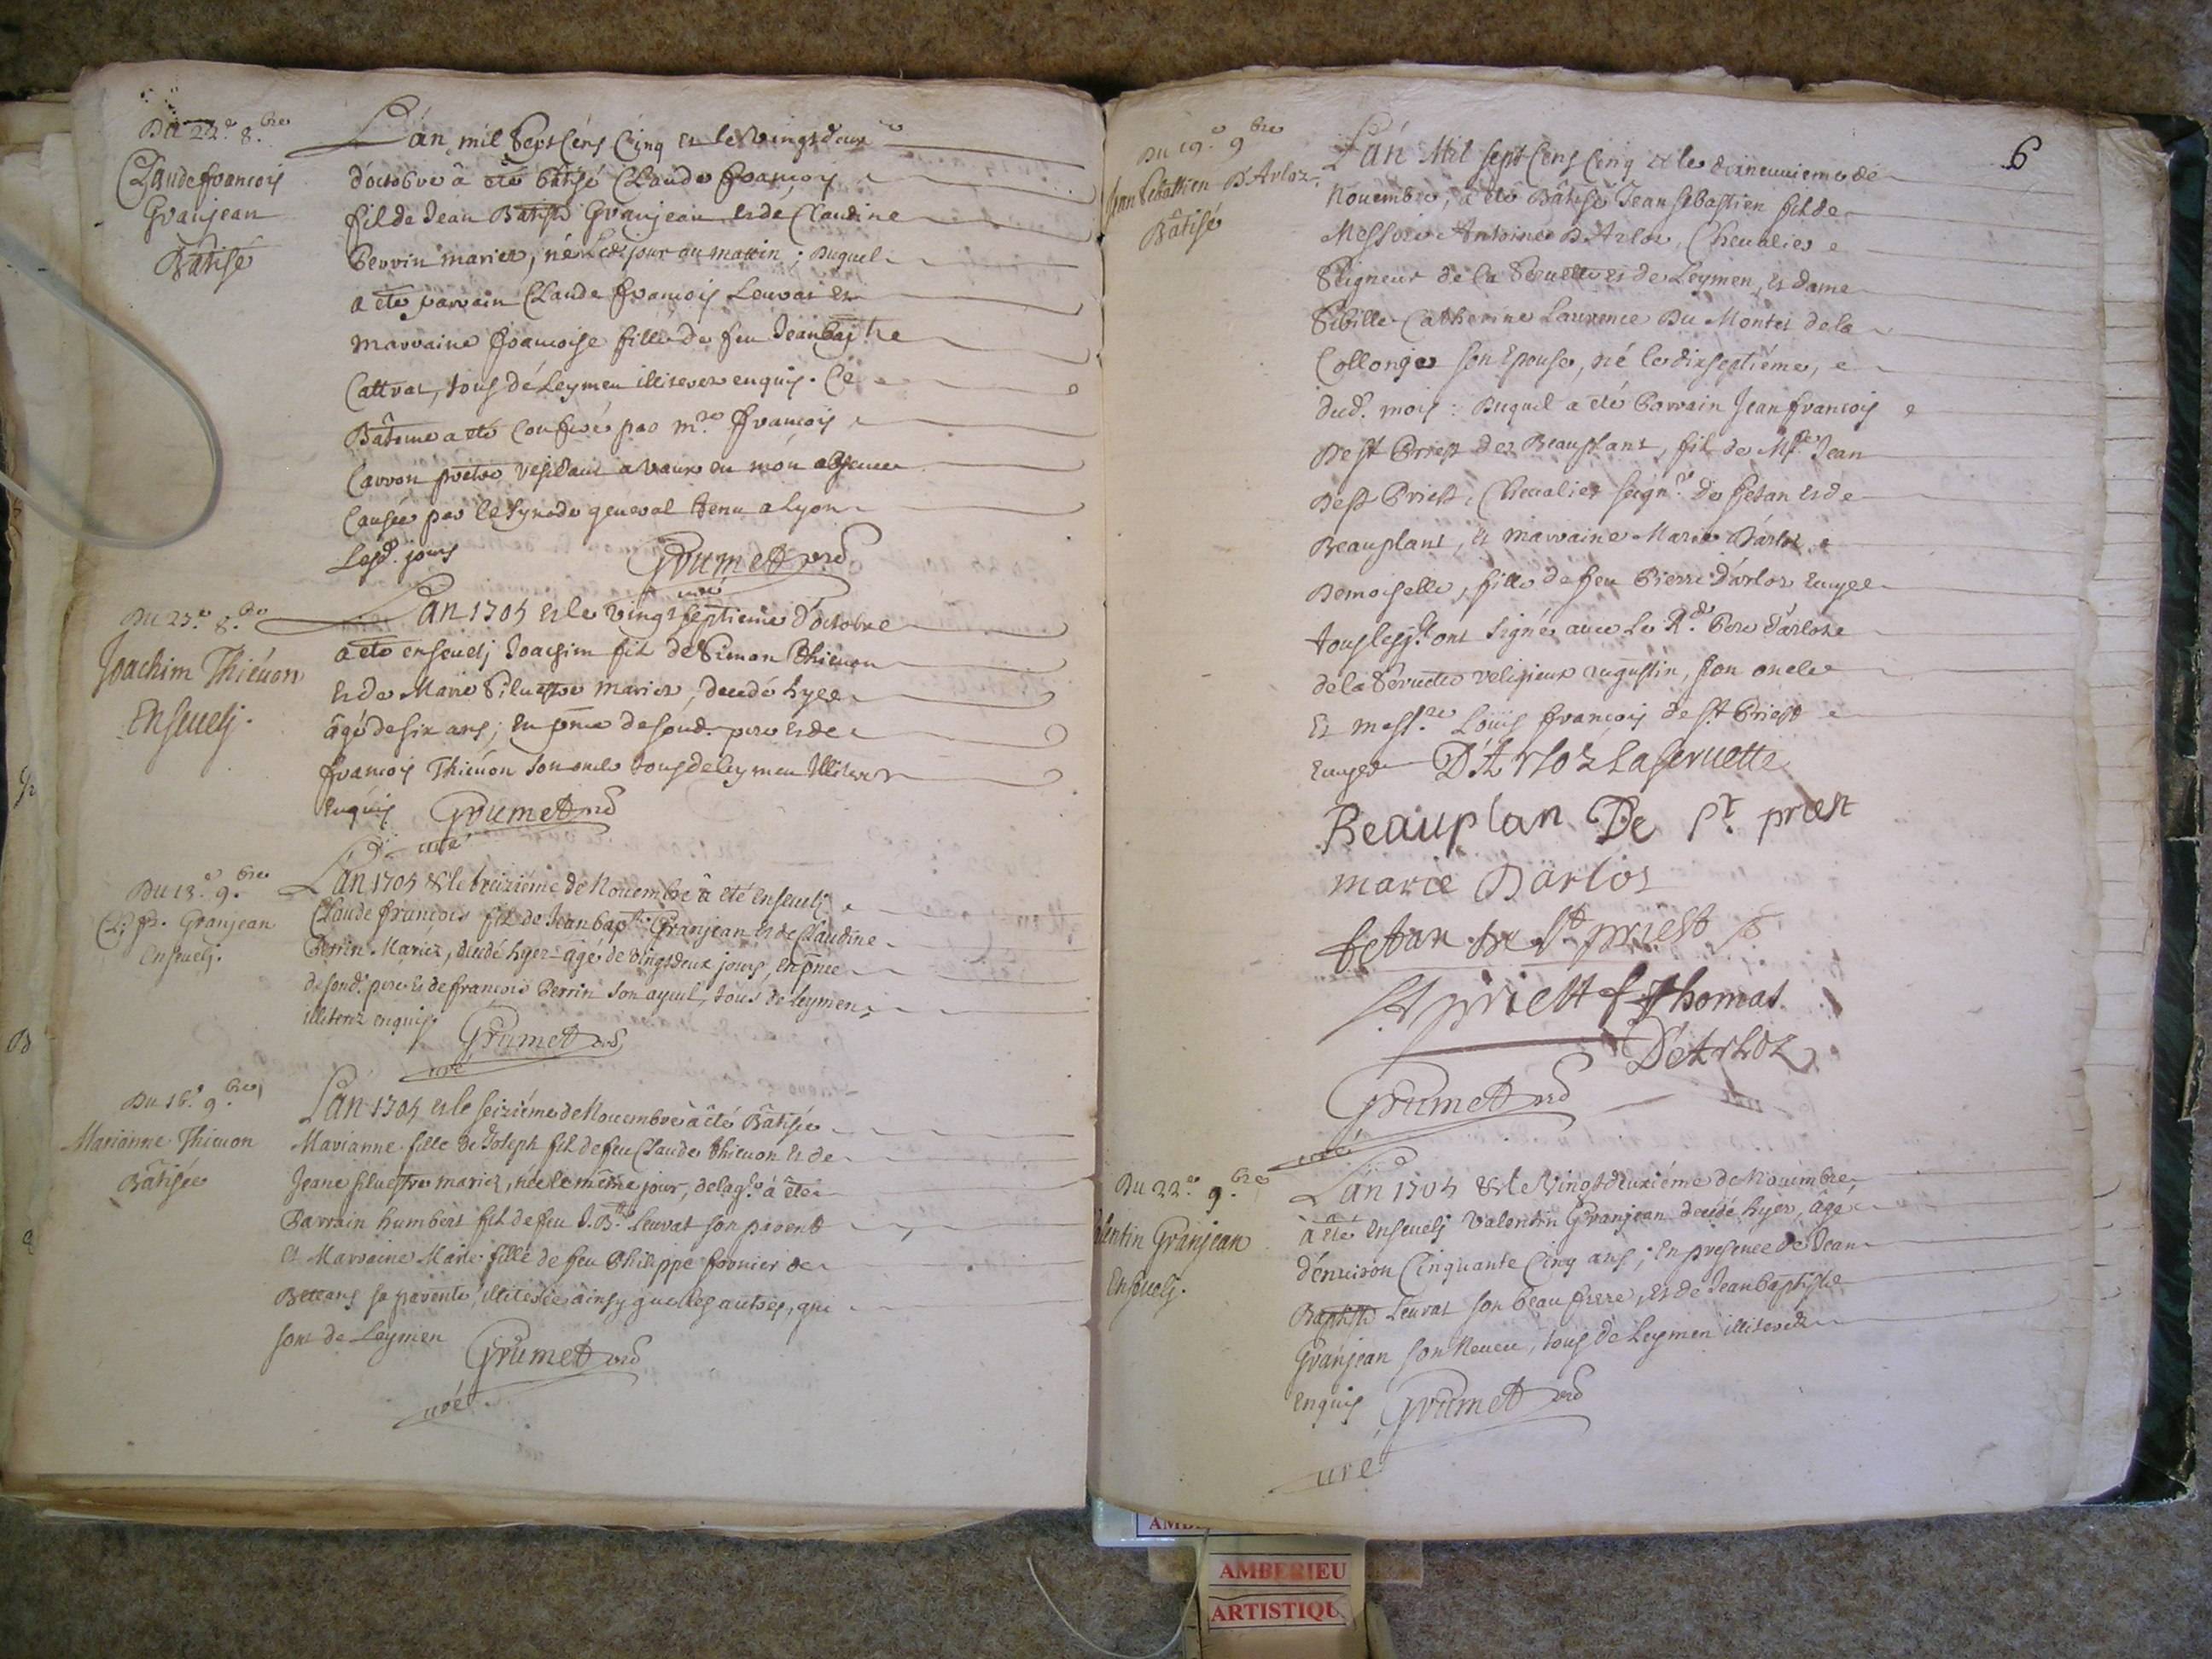 Du 22.e 8.bre
Claude francois
Granjean
Bâtisé
L'an mil Sept Cens Cinq et le Vingt deux
d'octobre a été bâtisé Claude françois
fil de Jean Batiste Granjean et de Claudine
Perrin mariez, né ledt jour au matin ; Duquel
a été parrain Claude françois Leuvat et
marraine françoise fille de feu Jean bapte
Cattrat, tous de Leymen illiterez enquis. Ce
Bâteme a été Conferé par mre françois
Carron prêtre residant a Vaux en mon absence
Causée par le Synode general tenu a Lyon
lesd. jours
Grumet
curé
Du 27.e 8.bre
Joachim Thieuon
Enseuelj.
L'an 1705 et le Vingt septieme d'octobre
a été enseuelj Joachim fil de Simon Thieuon
et de Marie Siluestre mariez, decedé hyer
âgé de six ans ; en pnce de sond. pere et de
françois Thieuon son oncle tous de leymen Illiterez
enquis Grumet
curé
Du 13.e 9.bre
Cl. fr. Granjean
Enseuelj.
L'an 1705 & le treizième de Nouembre a été enseuelj
Claude françois fil de Jean bapt. Granjean et de Claudine
Perrin Mariez, decedé hyer âgé de vingt deux jours, en pnce
de sond. pere et de francois Perrin son ayeul, tous de Leymen,
illiterez enquis.
Grumet
curé
Du 16.e 9.bre
Marianne Thieuon
Bâtisée
L'an 1705 et le seiziéme de Nouembre a été Bâtisée
Marianne fille de Joseph fil de feu Claude thieuon et de
Jeane siluestre mariez, née le même jour, de laqle a été
Parrain humbert fil de feu J. Bt Leuvat son parent
Et Marraine Marie fille de feu Philippe fornier de
sa parente, illiterée ainsy que les autres, qui
sont de Leymen
Grumet
curé
6
Du 19.e 9.bre
Jean Sebastien D'Arloz
Bâtisé
L'an Mil sept Cens Cinq et le dixneuuieme de
Nouembre, a été Bâtisé Jean sebastien fil de
Messire Antoine D'Arloz, Cheualier
Seigneur de la Seruette et de Leymen, et dame
Sibille Catherine Laurence Du Montet de la
Collonge son Epouse, né le dixseptiéme,
dud. mois : Duquel a été Parrain Jean françois
De st Priest de Beauplant, fil de Mre Jean
De st Priest, Cheualier seignr de fetan et de
Beauplant, et marraine Marie D'arloz
Demoiselle, fille de feu Pierre d'arloz Ecuyer
tous lesqls ont signé auec le Rd Pere d'arloz
de la Seruette religieux augustin, son oncle
Et messre Louis françois de st Priest
Ecuyer D'Arloz Laseruette
Beauplan De st. priest
marie Darloz
fetan de st priest
st priest f thomas
D'Arloz
Grumet
curé
Du 22.e 9.bre
Valentin Granjean
Enseuelj.
L'an 1705 & le Vingt deuxiéme de Nouembre
a été Enseuelj Valentin Granjean decedé hyer, âgé
d'enuiron Cinquante Cinq ans ; En presence de Jean
Baptiste Leuvat son beau frere, et de Jean baptiste
Granjean son Neueu, tous de Leymen illiterez
enquis Grumet
curé
AMBERIEU
ARTISTIQU